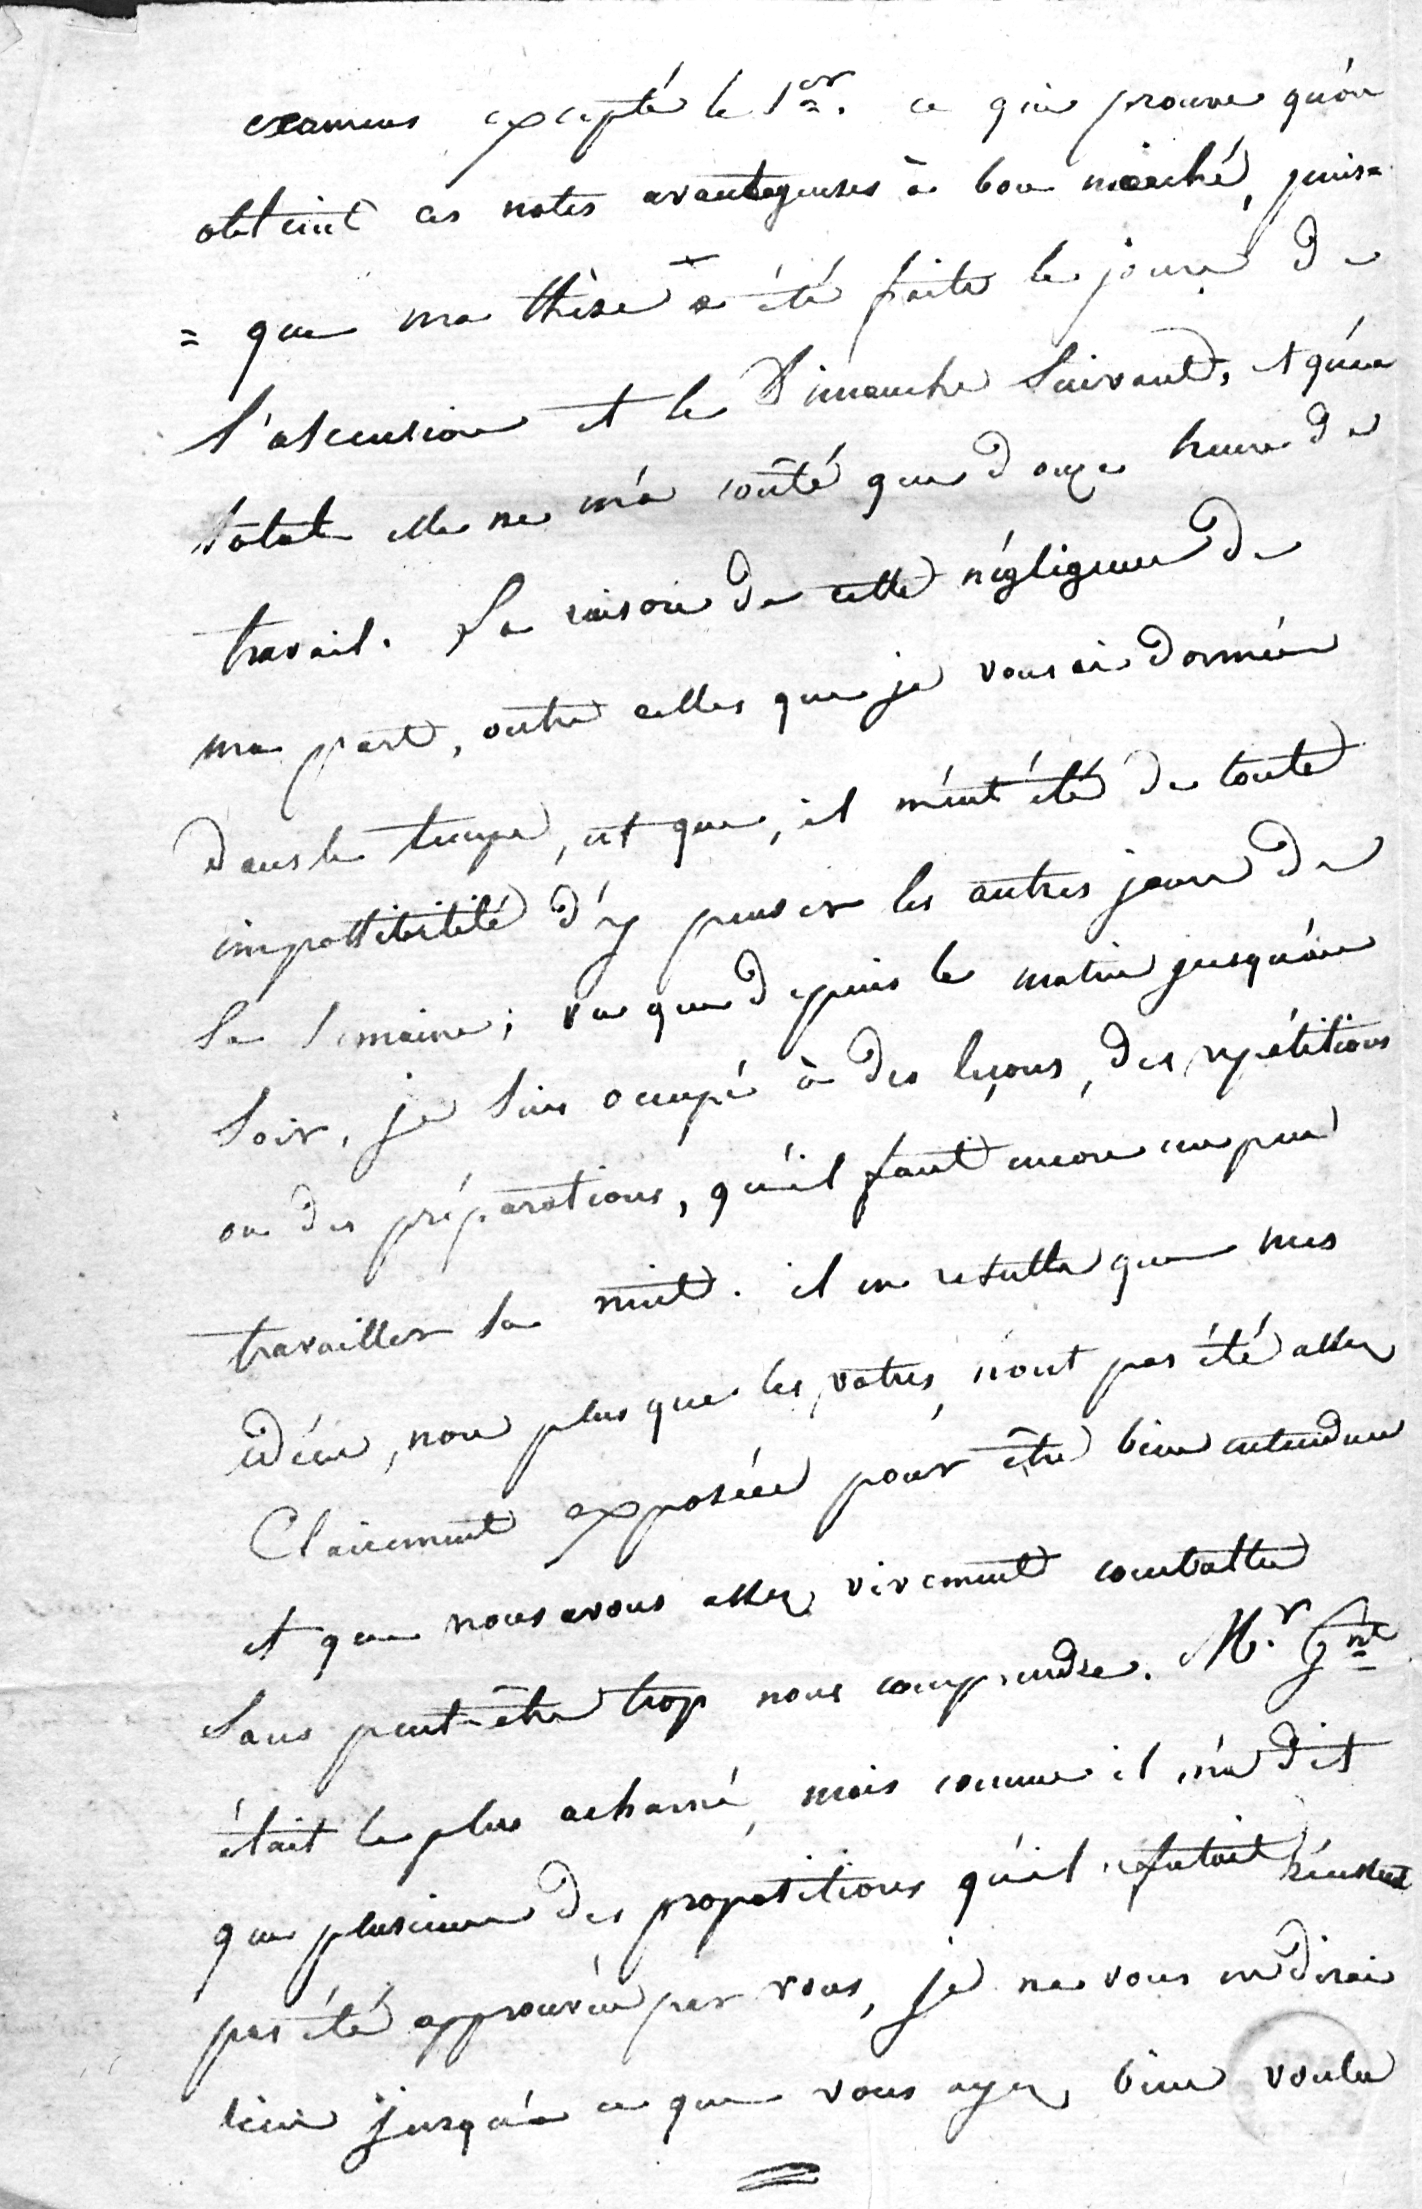 examens excepté le 1er. ce qui prouve qu'on
obtient ces notes avantageuses à bon marché, puis=
= que ma thèse a été faite le jour de
l'ascension et le Dimanche suivant, et qu'en
total elle ne m'a coûté que douze heures de
travail. La raison de cette négligence de
ma part, outre celles que je vous ai données
dans le temps, est que, il m'eut été de toute
impossibilité d'y penser les autres jours de
la semaine; vu que depuis le matin jusqu'au
soir, je suis occupé à des leçons, des répétitions
ou des préparations, qu'il faut encore un peu
travailler la nuit. il en resulte que mes
idées, non plus que les votres, n'ont pas été assez
clairement exposées pour être bien entendues
et que nous avons assez vivement combattu
sans peut-être trop nous comprendre. Mr. Gnt
était le plus acharné, mais comme il m'a dit
que plusieurs des propositions qu'il refutait
pas été approuvées par vous, je ne vous en dirai
rien jusqu'à ce que vous ayez bien voulu